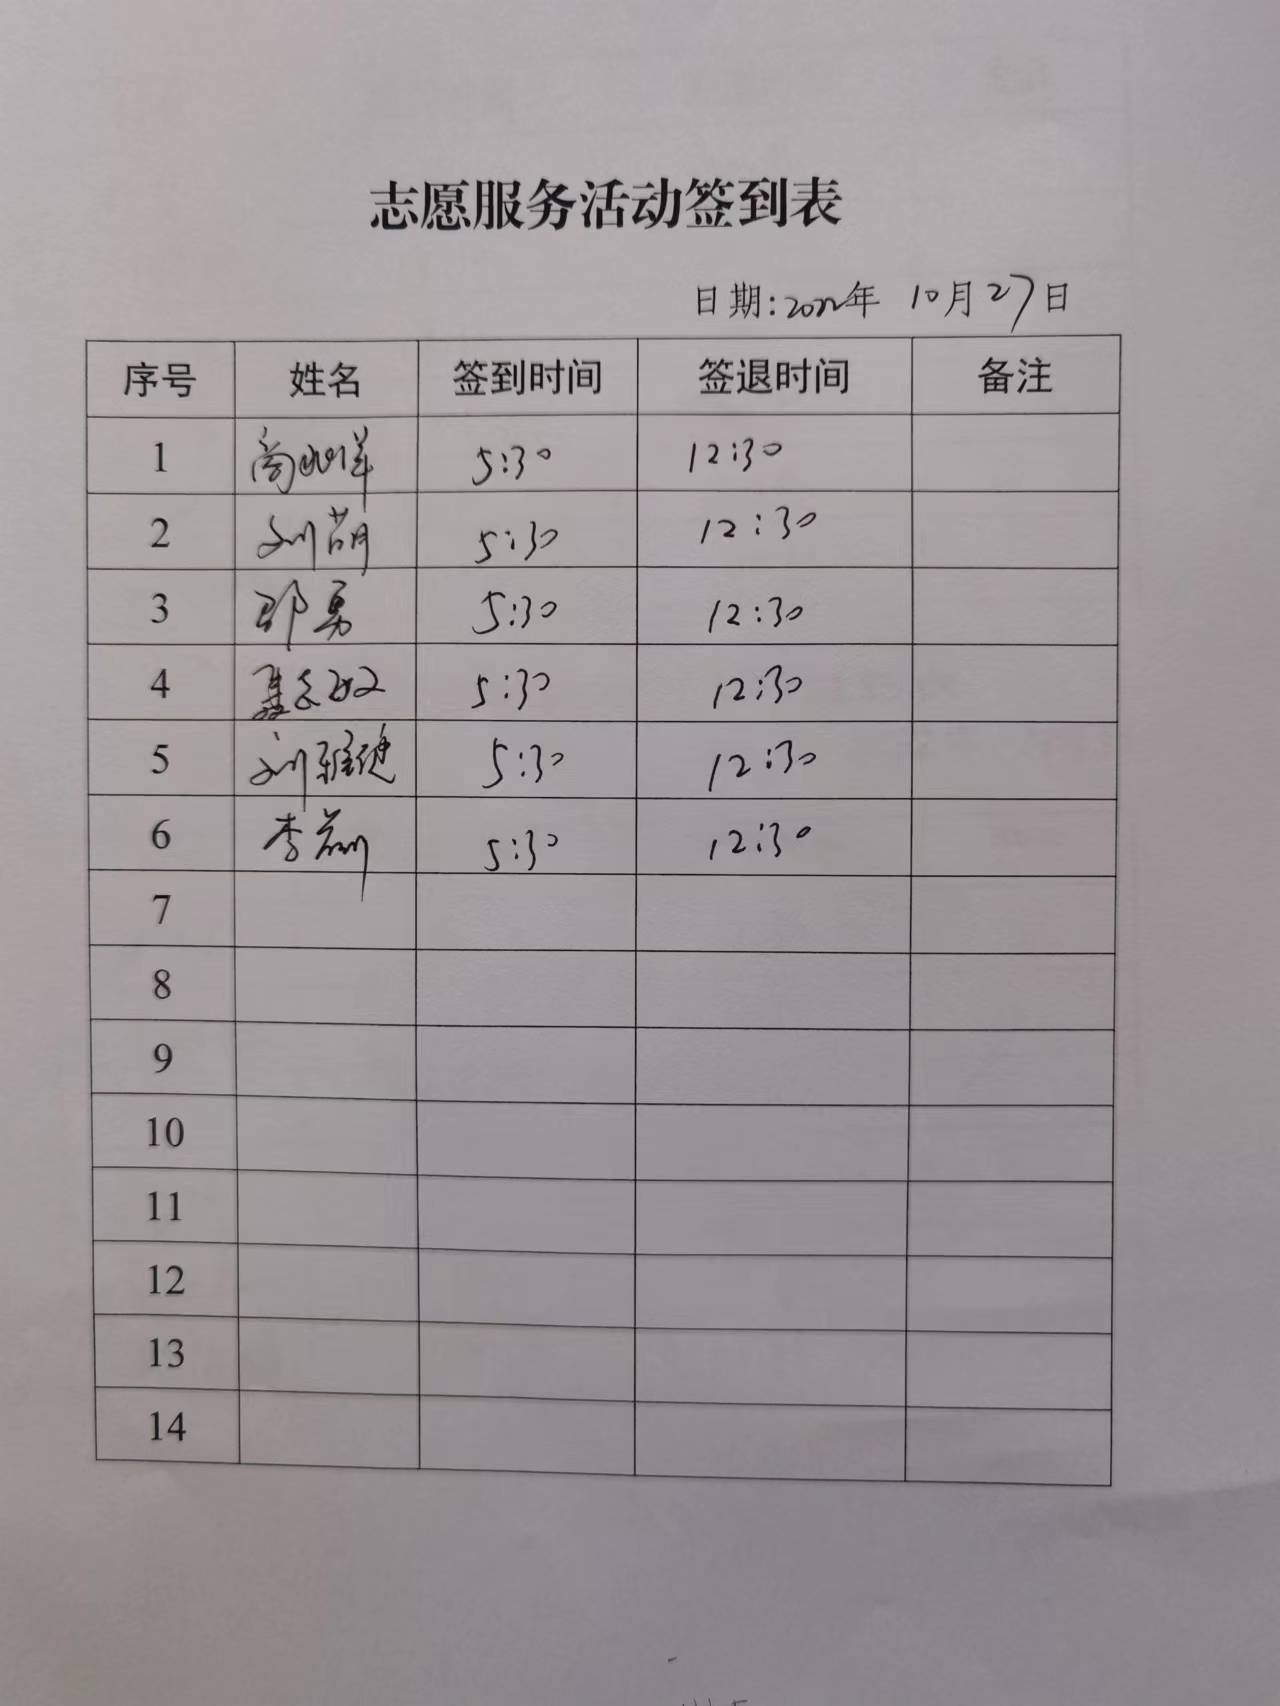 志愿服务活动签到表
日期:2022年 10月27日
序号 姓名 签到时间 签退时间 备注
1 尚 5:30 12:30
2 刘萌 5:30 12:30
3 邵勇 5:30 12:30
4 聂 5:30 12:30
5 刘雅 5:30 12:30
6 李 5:30 12:30
7
8
9
10
11
12
13
14